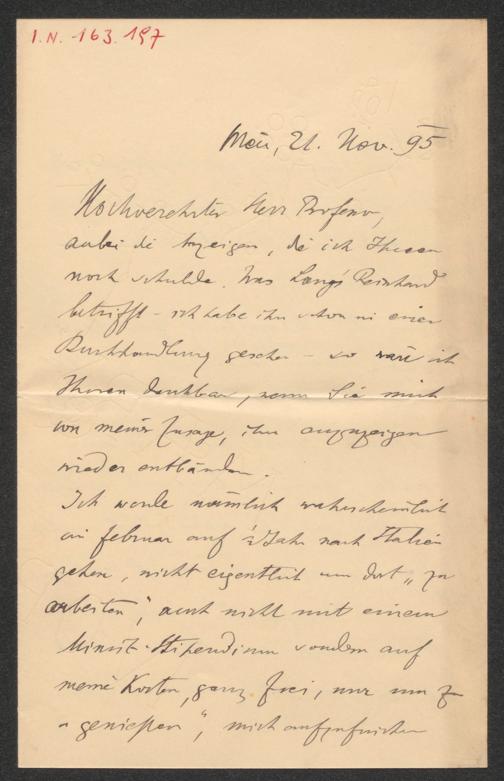 I.N. 163.197
Wien, 21. Nov. 95
Hochverehrter Herr Professor,
anbei die Anzeigen, die ich Ihnen
noch schulde. Was Lange's Reinhard
betrifft – ich habe ihn schon in einer
Buchhandlung gesehen – so wäre ich
Ihnen dankbar, wenn Sie mich
von meiner Zusage, ihn anzuzeigen
wieder entbänden.
Ich werde nämlich wahrscheinlich
im Februar auf ½ Jahr nach Italien
gehen, nicht eigentlich um dort „zu
arbeiten", auch nicht mit einem
Minist-Stipendium sondern auf
meine Kosten, ganz frei, nur um zu
„genießen", mich aufzufrischen